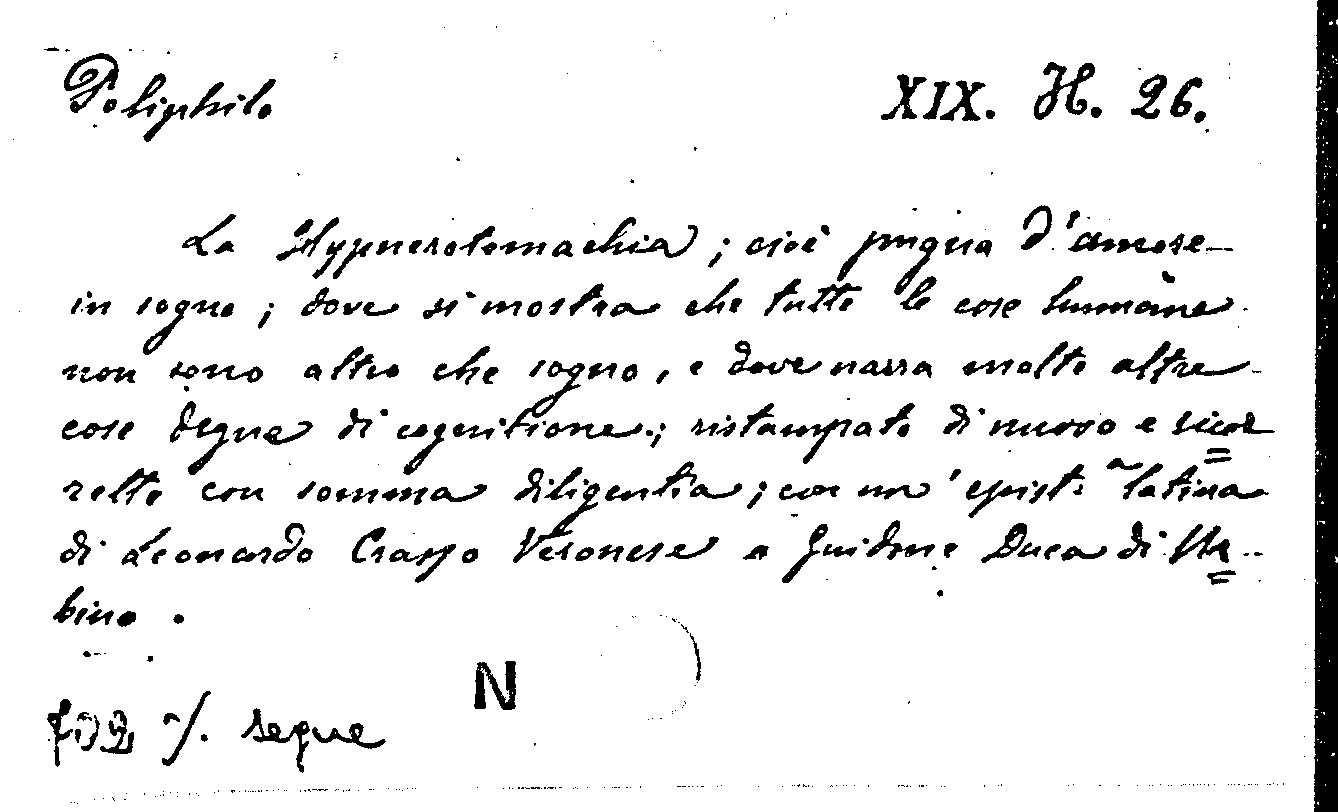 Poliphilo XIX. H. 26.
La Hypnerotomachia ; cioè pugna d'amore
in sogno ; dove si mostra che tutte le cose humane
non sono altro che sogno, e dove narra molte altre
cose degne di cognitione ; ristampato di nuovo e ricor
retto con somma diligentia ; con un' epist. latina
di Leonardo Crasso Veronese a Guidone Duca di Ur
bino .
N
segue